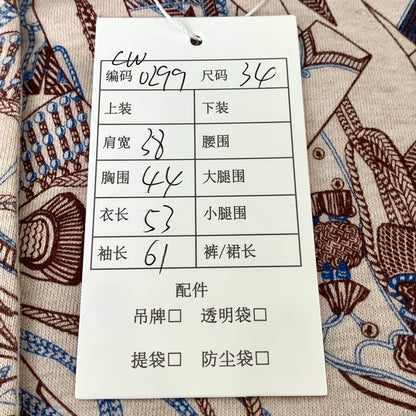 CW
编码 0299 尺码 34
上装 下装
肩宽 38 腰围
胸围 44 大腿围
衣长 53 小腿围
袖长 61 裤/裙长
配件
吊牌□ 透明袋□
提袋□ 防尘袋□